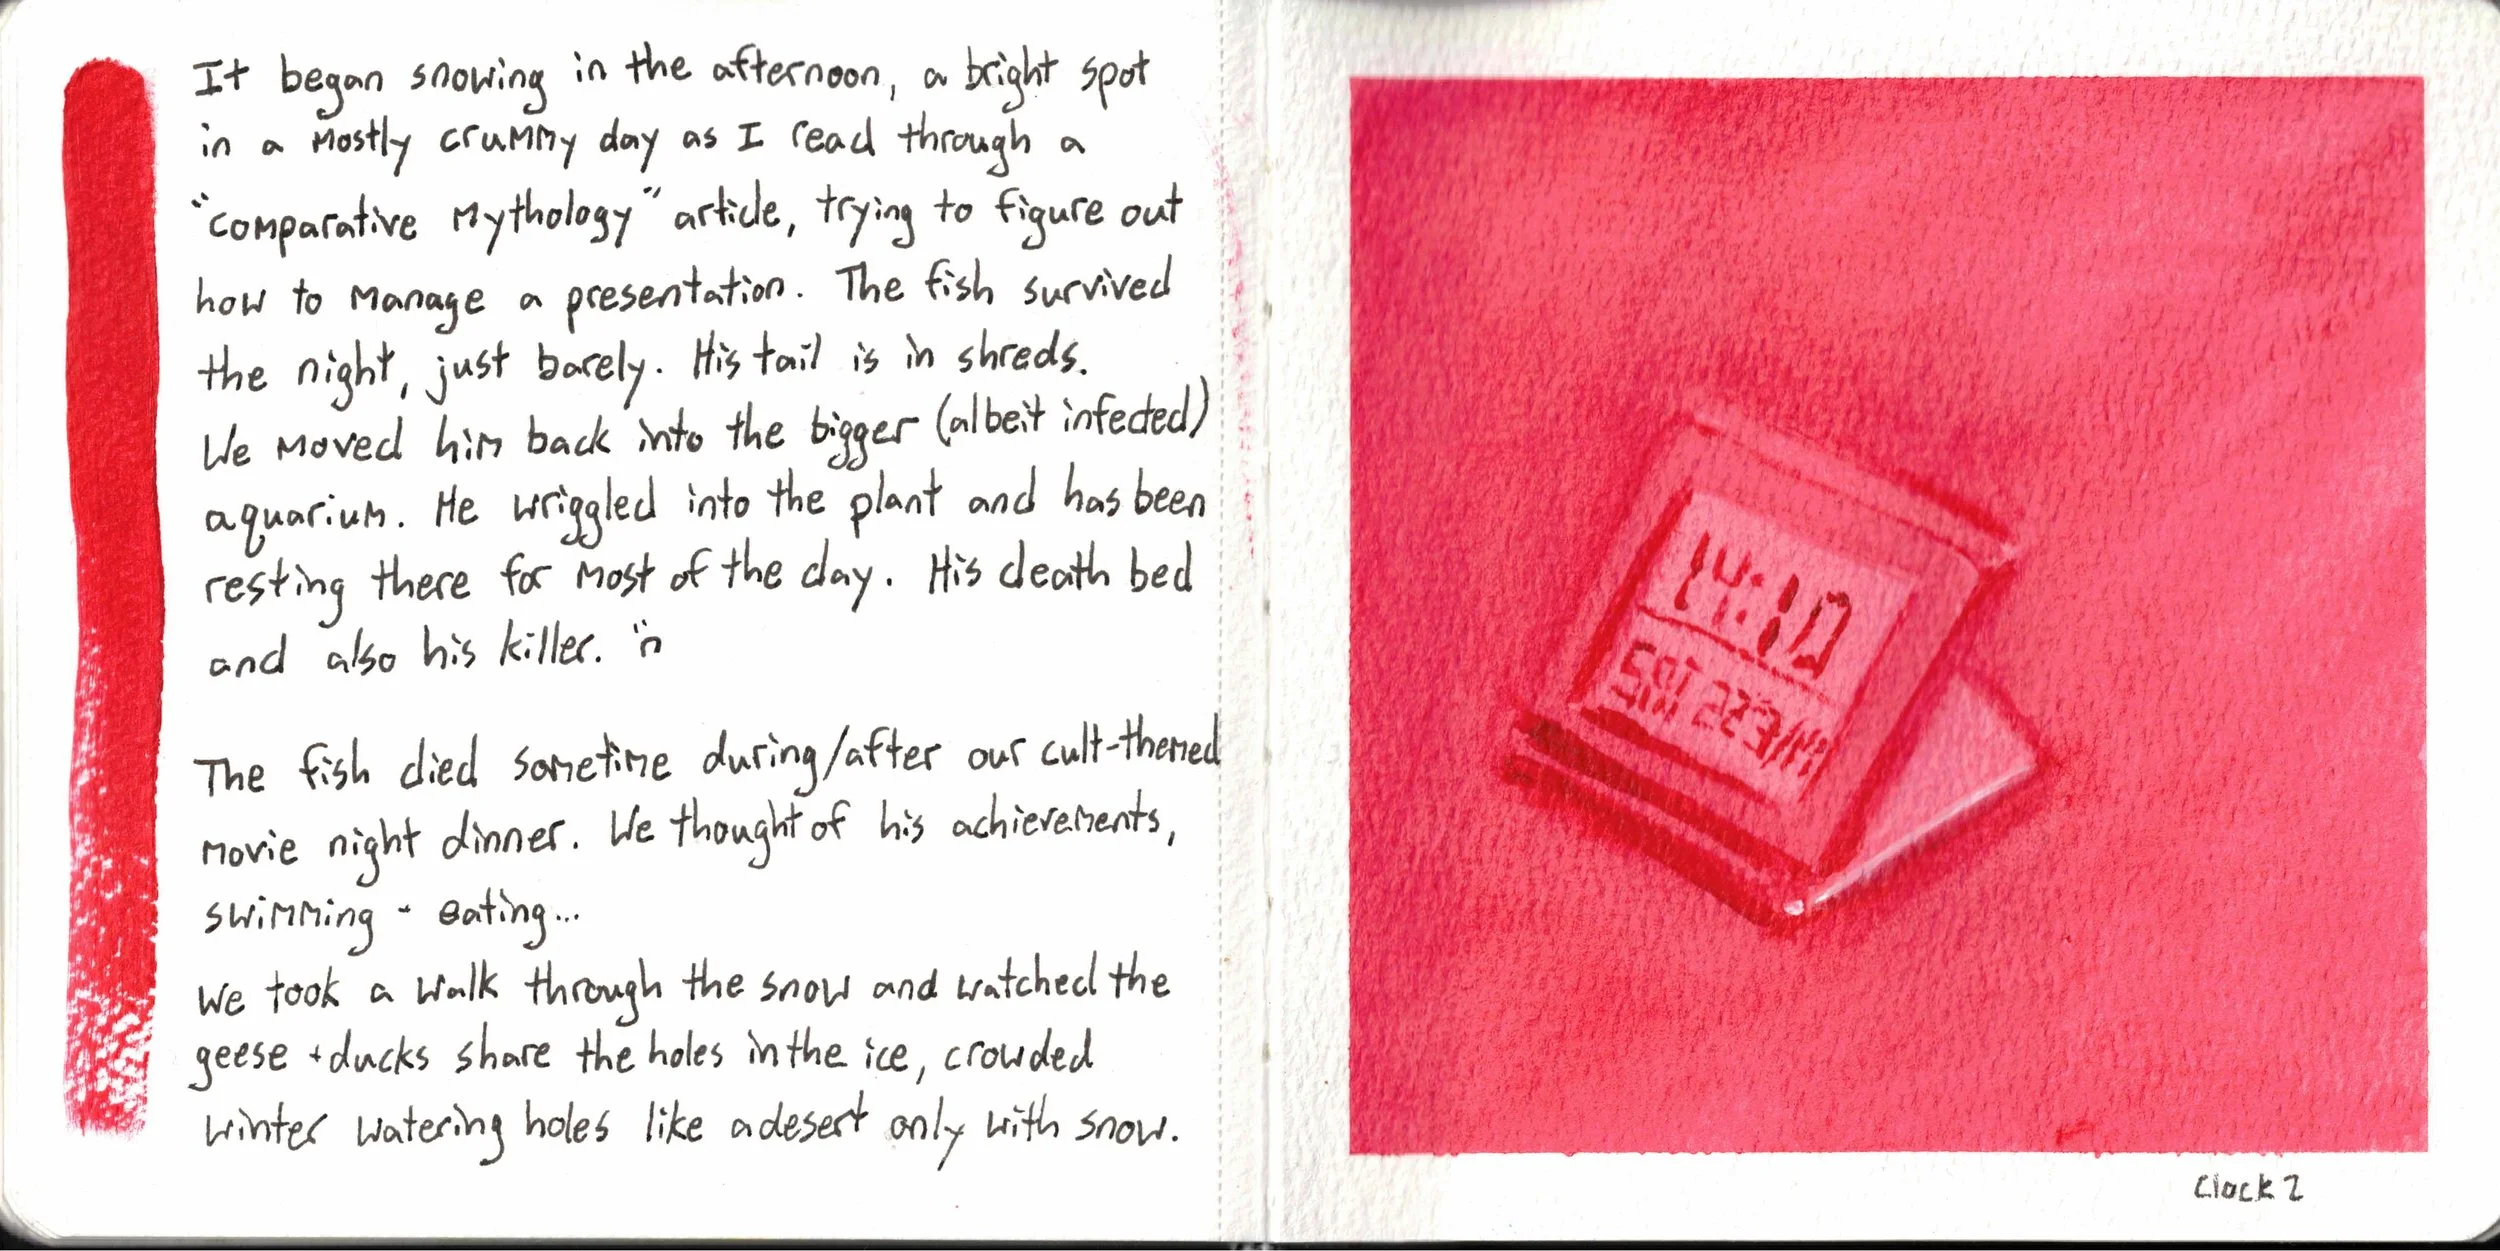 It began snowing in the afternoon, a bright spot
in a mostly crummy day as I read through a
"comparative mythology" article, trying to figure out
how to manage a presentation. The fish survived
the night, just barely. His tail is in shreds.
We moved him back into the bigger (albeit infected)
aquarium. He wriggled into the plant and has been
resting there for most of the day. His death bed
and also his killer. ¨n
The fish died sometime during/after our cult-themed
movie night dinner. We thought of his achievements,
swimming - eating...
We took a walk through the snow and watched the
geese + ducks share the holes in the ice, crowded
winter watering holes like a desert only with snow.
14:10
SAT
Clock 2